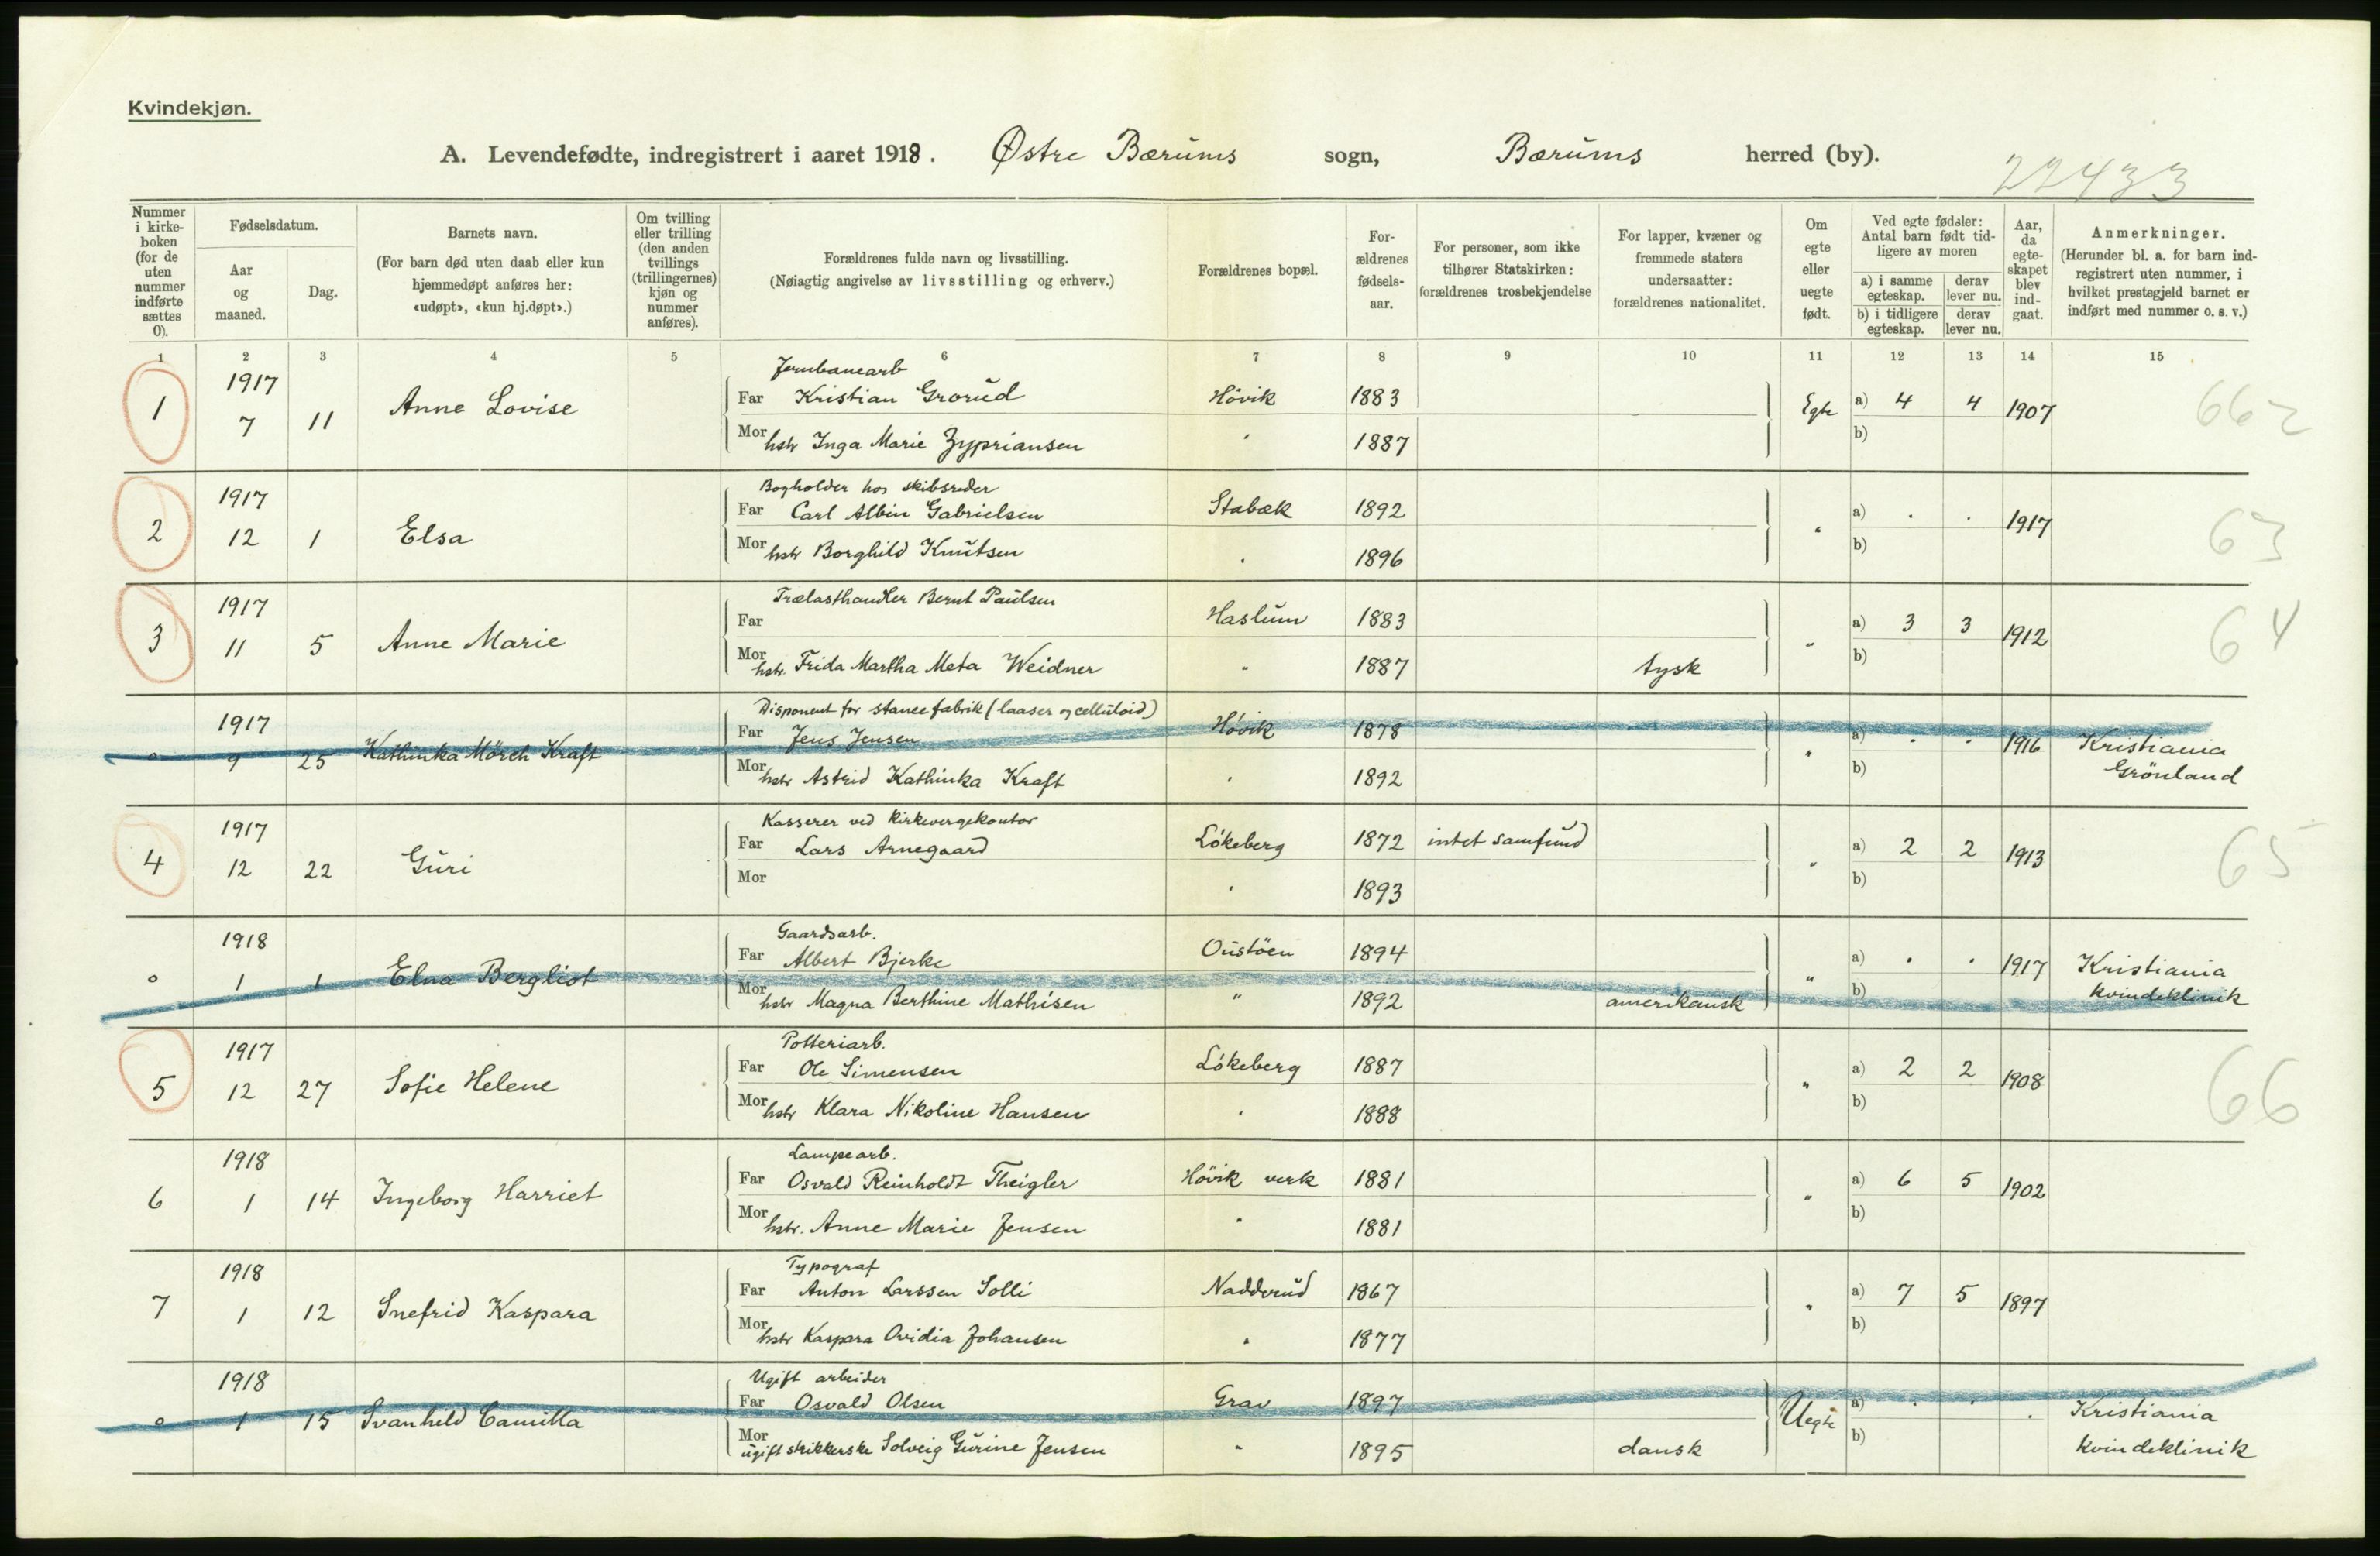 Kvindekjøn.
A. Levendefødte, indregistrert i aaret 1918. Østre Bærums sogn, Bærums herred (by).
22433
Nummer i kirke-boken (for de uten nummer indførte sættes 0).
Fødselsdatum.
Aar og maaned.
Dag.
Barnets navn.
(For barn død uten daab eller kun hjemmedøpt anføres her: «udøpt», «kun hj.døpt».)
Om tvilling eller trilling (den anden tvillings (trillingernes) kjøn og nummer anføres).
Forældrenes fulde navn og livsstilling.
(Nøiagtig angivelse av livsstilling og erhverv.)
Forældrenes bopæl.
For-ældrenes fødsels-aar.
For personer, som ikke tilhører Statskirken: forældrenes trosbekjendelse
For lapper, kvæner og fremmede staters undersaatter: forældrenes nationalitet.
Om egte eller uegte født.
Ved egte fødsler: Antal barn født tid-ligere av moren
a) i samme egteskap. derav lever nu.
b) i tidligere egteskap. derav lever nu.
Aar, da egte-skapet blev ind-gaat.
Anmerkninger.
(Herunder bl. a. for barn ind-registrert uten nummer, i hvilket prestegjeld barnet er indført med nummer o. s. v.)
1 2 3 4 5 6 7 8 9 10 11 12 13 14 15
Jernbanearb
1 1917 7 11 Anne Lovise Far Kristian Grorud Høvik 1883 Egte a) 4 4 1907 662
Mor hstr Inga Marie Zypriansen " 1887 b)
Bogholder hos skibsreder
2 1917 12 1 Elsa Far Carl Albin Gabrielsen Stabæk 1892 " a) . . 1917 63
Mor hstr Borghild Knutsen " 1896 b)
Trælasthandler Bernt Paulsen
3 1917 11 5 Anne Marie Far Haslum 1883 " a) 3 3 1912 64
Mor hstr. Frida Martha Meta Weidner " 1887 tysk b)
Disponent for stancefabrik (laaser og celluloid)
0 1917 9 25 Kathinka Mörch Kraft Far Jens Jensen Høvik 1878 " a) . . 1916 Kristiania Grönland
Mor hstr Astrid Kathinka Kraft " 1892 b)
Kasserer ved kirkevergekontor
4 1917 12 22 Guri Far Lars Arnegaard Løkeberg 1872 intet samfund " a) 2 2 1913 65
Mor " 1893 b)
Gaardsarb.
0 1918 1 1 Elna Bergliot Far Albert Bjerke Oustöen 1894 " a) . . 1917 Kristiania kvindeklinik
Mor hstr Magna Berthine Mathisen " 1892 amerikansk b)
Potteriarb.
5 1917 12 27 Sofie Helene Far Ole Simensen Løkeberg 1887 " a) 2 2 1908 66
Mor hstr Klara Nikoline Hansen " 1888 b)
Lampearb.
6 1918 1 14 Ingeborg Harriet Far Osvald Reinholdt Theigler Høvik verk 1881 " a) 6 5 1902
Mor hstr. Anne Marie Jensen " 1881 b)
Typograf
7 1918 1 12 Snefrid Kaspara Far Anton Larssen Solli Nadderud 1867 " a) 7 5 1897
Mor hstr Kaspara Ovidia Johansen " 1877 b)
Ugift arbeider
0 1918 1 15 Svanhild Camilla Far Osvald Olsen Grav 1897 Uegte a) . . . Kristiania kvindeklinik
Mor ugift strikkerske Solveig Gurine Jensen " 1895 dansk b)